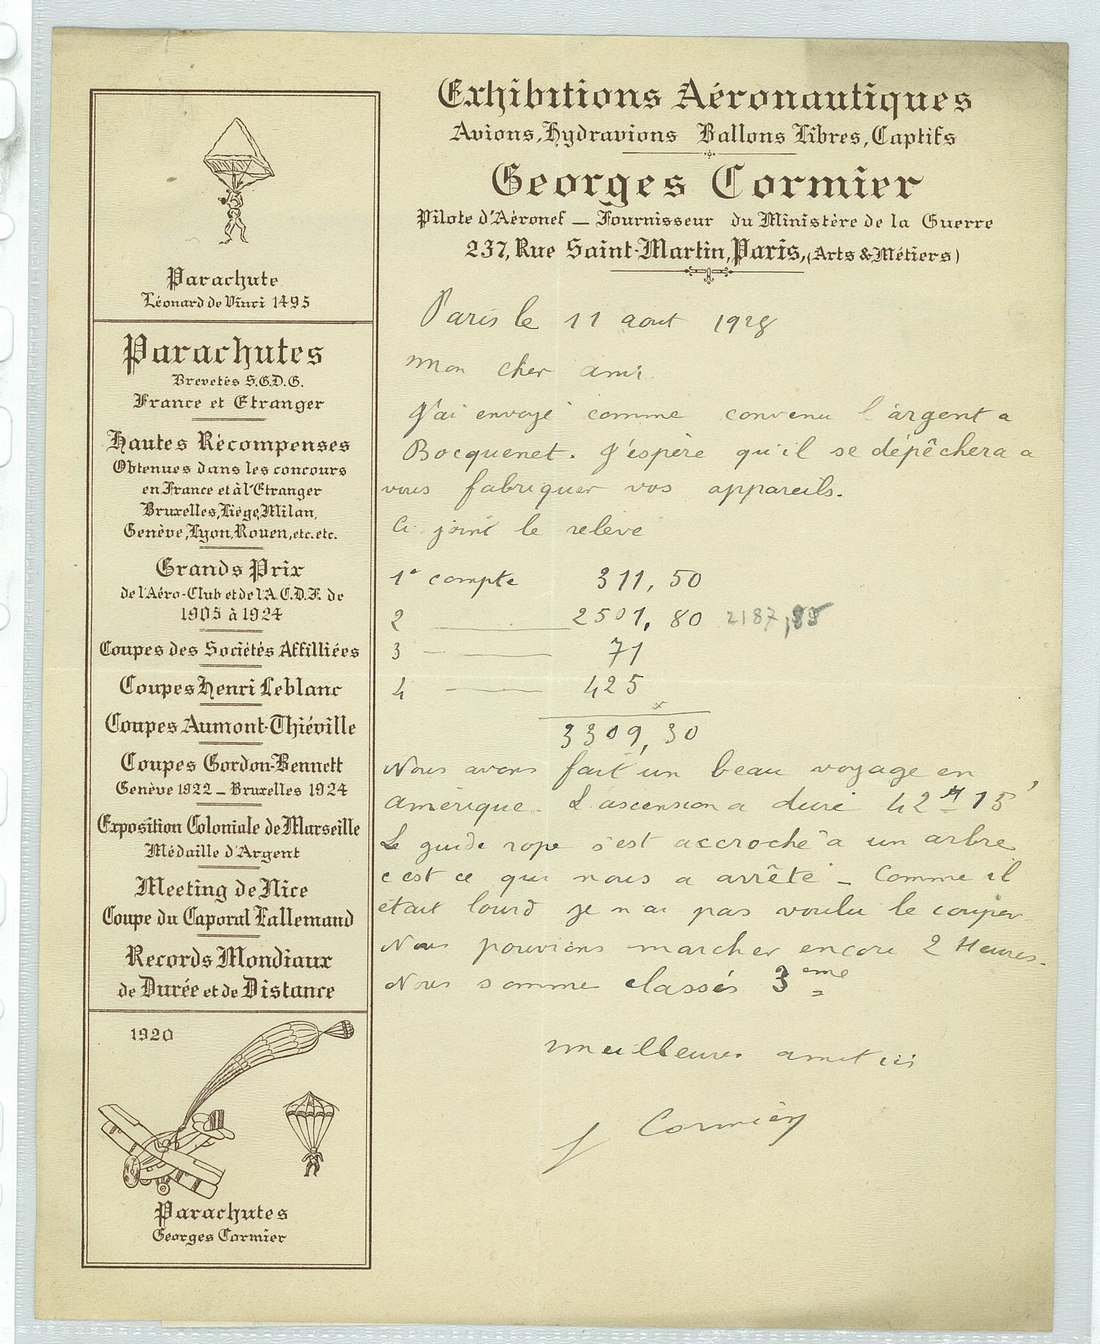 Exhibitions Aéronautiques
Avions, Hydravions Ballons Libres, Captifs
Georges Cormier
Pilote d'Aéronef — Fournisseur du Ministère de la Guerre
237, Rue Saint-Martin, Paris, (Arts & Métiers)
Parachute
Léonard de Vinci 1495
Parachutes
Brevetés S.G.D.G.
France et Etranger
Hautes Récompenses
Obtenues dans les concours
en France et à l'Etranger
Bruxelles, Liège, Milan,
Genève, Lyon, Rouen, etc. etc.
Grands Prix
de l'Aéro-Club et de l'A.C.D.F. de
1905 à 1924
Coupes des Sociétés Affilliées
Coupes Henri Leblanc
Coupes Aumont-Thiéville
Coupes Gordon-Bennett
Genève 1922 — Bruxelles 1924
Exposition Coloniale de Marseille
Médaille d'Argent
Meeting de Nice
Coupe du Caporal Lallemand
Records Mondiaux
de Durée et de Distance
1920
Parachutes
Georges Cormier
Paris le 11 aout 1928
Mon cher ami
J'ai envoyé comme convenu l'argent a
Bocquenet. J'éspère qu'il se dépêchera a
vous fabriquer vos appareils.
Ci joint le relevé
1º compte 311,50
2 — 2501,80 2187,85
3 — 71
4 — 425
3309,30
Nous avons fait un beau voyage en
amérique. L'ascension a duré 42 H 15'
Le guide rope s'est accroché a un arbre
c'est ce qui nous a arrêté – Comme il
etait lourd je n'ai pas voulu le couper
Nous pouvions marcher encore 2 Heures.
Nous somme classés 3eme
meilleures amitiés
G Cormier